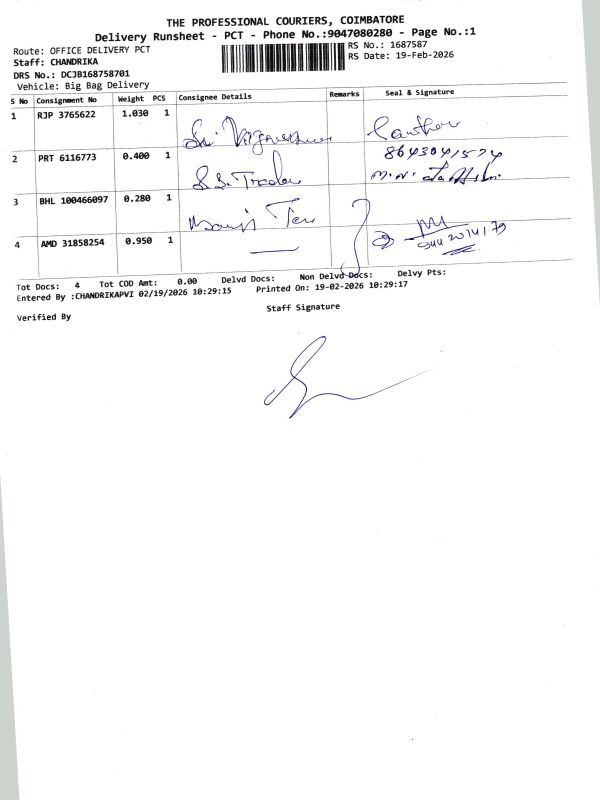 THE PROFESSIONAL COURIERS, COIMBATORE
Delivery Runsheet - PCT - Phone No.:9047080280 - Page No.:1
Route: OFFICE DELIVERY PCT
RS No.: 1687587
Staff: CHANDRIKA
RS Date: 19-Feb-2026
DRS No.: DCJB168758701
Vehicle: Big Bag Delivery
S No Consignment No Weight PCS Consignee Details Remarks Seal & Signature
1 RJP 3765622 1.030 1 Sri
2 PRT 6116773 0.400 1 S.S. Trader
3 BHL 100466097 0.280 1
4 AMD 31858254 0.950 1
Tot Docs: 4 Tot COD Amt: 0.00 Delvd Docs: Non Delvd Docs: Delvy Pts:
Entered By :CHANDRIKAPVI 02/19/2026 10:29:15 Printed On: 19-02-2026 10:29:17
Staff Signature
Verified By